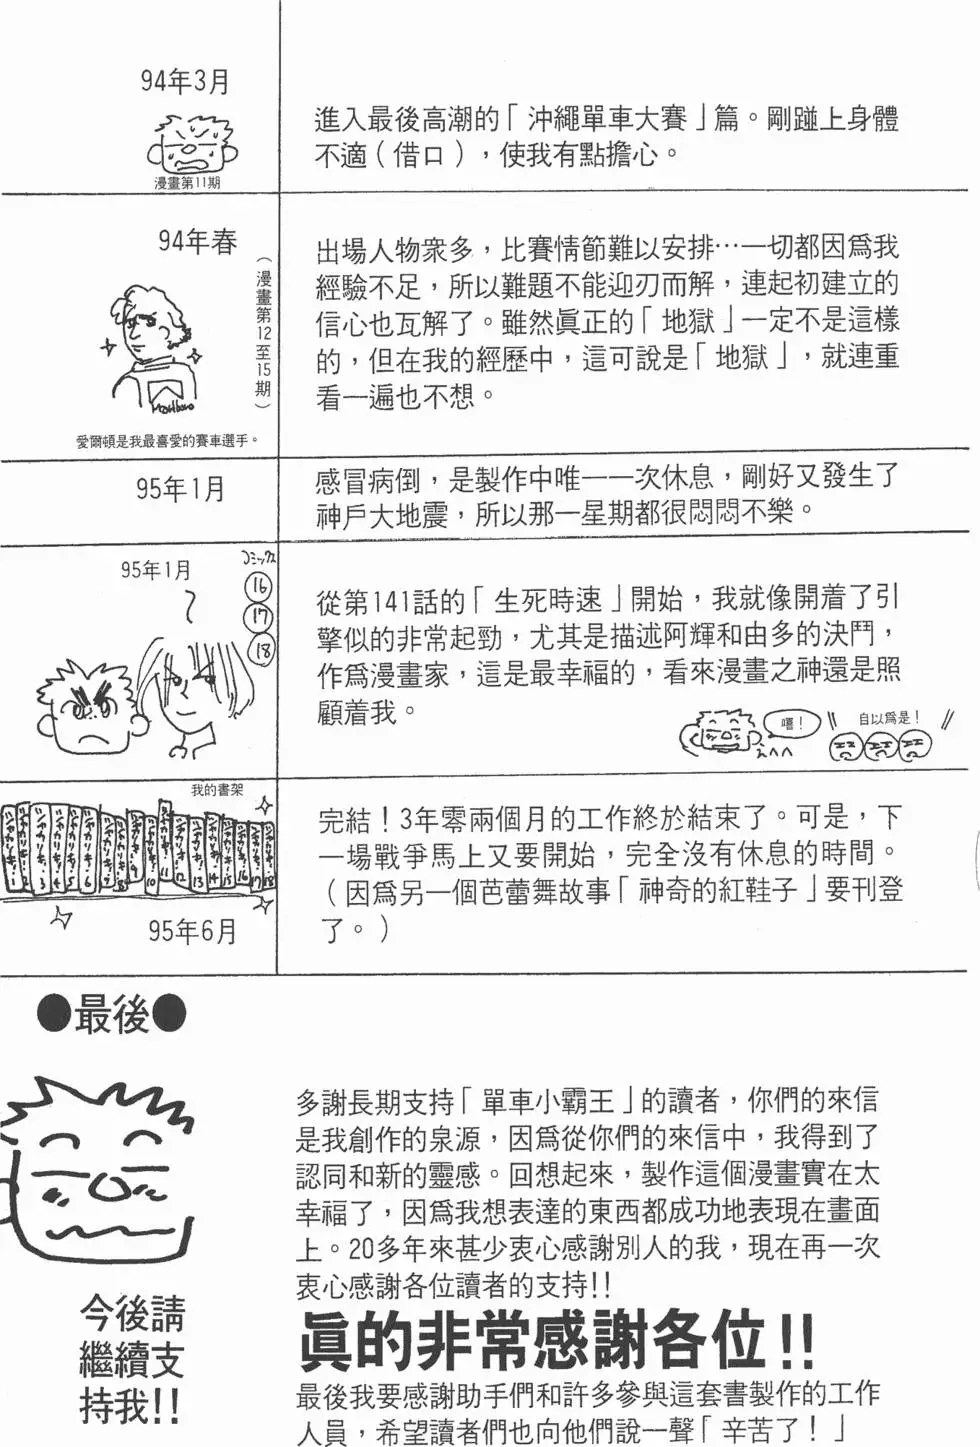 94年3月
漫畫第11期
進入最後高潮的「沖繩單車大賽」篇。剛踫上身體
不適（借口），使我有點擔心。
94年春
（漫畫第12至15期）
Marlboro
愛爾頓是我最喜愛的賽車選手。
出場人物衆多，比賽情節難以安排…一切都因爲我
經驗不足，所以難題不能迎刃而解，連起初建立的
信心也瓦解了。雖然眞正的「地獄」一定不是這樣
的，但在我的經歷中，這可說是「地獄」，就連重
看一遍也不想。
95年1月
感冒病倒，是製作中唯一一次休息，剛好又發生了
神戶大地震，所以那一星期都很悶悶不樂。
95年1月
コミックス
16
17
18
從第141話的「生死時速」開始，我就像開着了引
擎似的非常起勁，尤其是描述阿輝和由多的決鬥，
作爲漫畫家，這是最幸福的，看來漫畫之神還是照
顧着我。
嘻！
えへへ
自以爲是！
我的書架
95年6月
完結！3年零兩個月的工作終於結束了。可是，下
一場戰爭馬上又要開始，完全沒有休息的時間。
（因爲另一個芭蕾舞故事「神奇的紅鞋子」要刊登
了。）
●最後●
今後請
繼續支
持我!!
多謝長期支持「單車小霸王」的讀者，你們的來信
是我創作的泉源，因爲從你們的來信中，我得到了
認同和新的靈感。回想起來，製作這個漫畫實在太
幸福了，因爲我想表達的東西都成功地表現在畫面
上。20多年來甚少衷心感謝別人的我，現在再一次
衷心感謝各位讀者的支持!!
眞的非常感謝各位!!
最後我要感謝助手們和許多參與這套書製作的工作
人員，希望讀者們也向他們說一聲「辛苦了！」